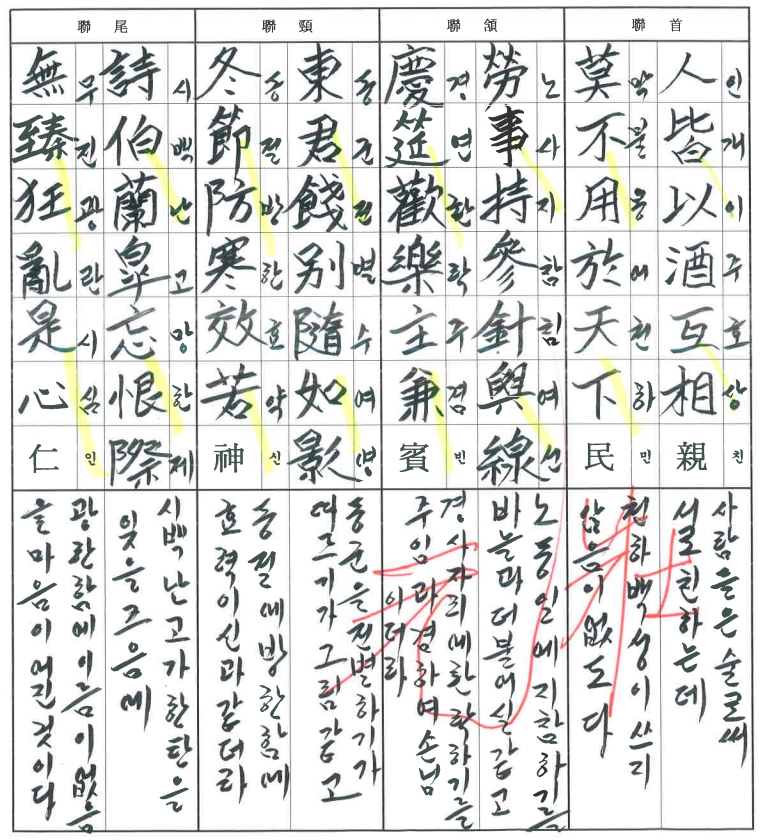 首聯
人皆以酒互相親
인개이주호상친
莫不用於天下民
막불용어천하민
頷聯
勞事持參針與線
노사지참침여선
慶筵歡樂主兼賓
경연환락주겸빈
頸聯
東君餞別隨如影
동군전별수여영
冬節防寒效若神
동절방한효약신
尾聯
詩伯蘭皐忘恨際
시백난고망한제
無臻狂亂是心仁
무진광란시심인
사람들은 술로써
서로 친하는데
천하백성이 쓰지
않음이 없도다
노동일에 지참하기를
바늘과 더불어 실 같고
경사자리에 환락하기를
주인과 겸하여 손님
이더라
동군을 전별하기가
따르기가 그림같고
동절에 방한함에
효력이 신과 같더라
시백 난고가 한탄을
잊을 즈음에
광란함에 이름이 없음
을 마음이 어진 것이다